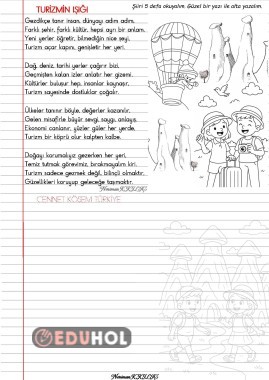 TURİZMİN IŞIĞI
Şiiri 5 defa okuyalım. Güzel bir yazı ile alta yazalım.
Gezdikçe tanır insan, dünyayı adım adım,
Farklı şehir, farklı kültür, hepsi ayrı bir anlam.
Yeni yerler öğretir, bilmediğin nice şeyi,
Turizm açar kapını, genişletir her yeri.
Dağ, deniz, tarihi yerler çağırır bizi,
Geçmişten kalan izler anlatır her gizemi.
Kültürler buluşur hep, insanlar kaynaşır,
Turizm sayesinde dostluklar çoğalır.
Ülkeler tanınır böyle, değerler kazanılır,
Gelen misafirle büyür sevgi, saygı, anlayış.
Ekonomi canlanır, yüzler güler her yerde,
Turizm bir köprü olur kalpten kalbe.
Doğayı korumalıyız gezerken her yeri,
Temiz tutmak görevimiz, bırakmayalım kiri.
Turizm sadece gezmek değil, bilinçli olmaktır,
Güzellikleri koruyup geleceğe taşımaktır.
CENNET KÖŞEM TÜRKİYE
EDUHOL